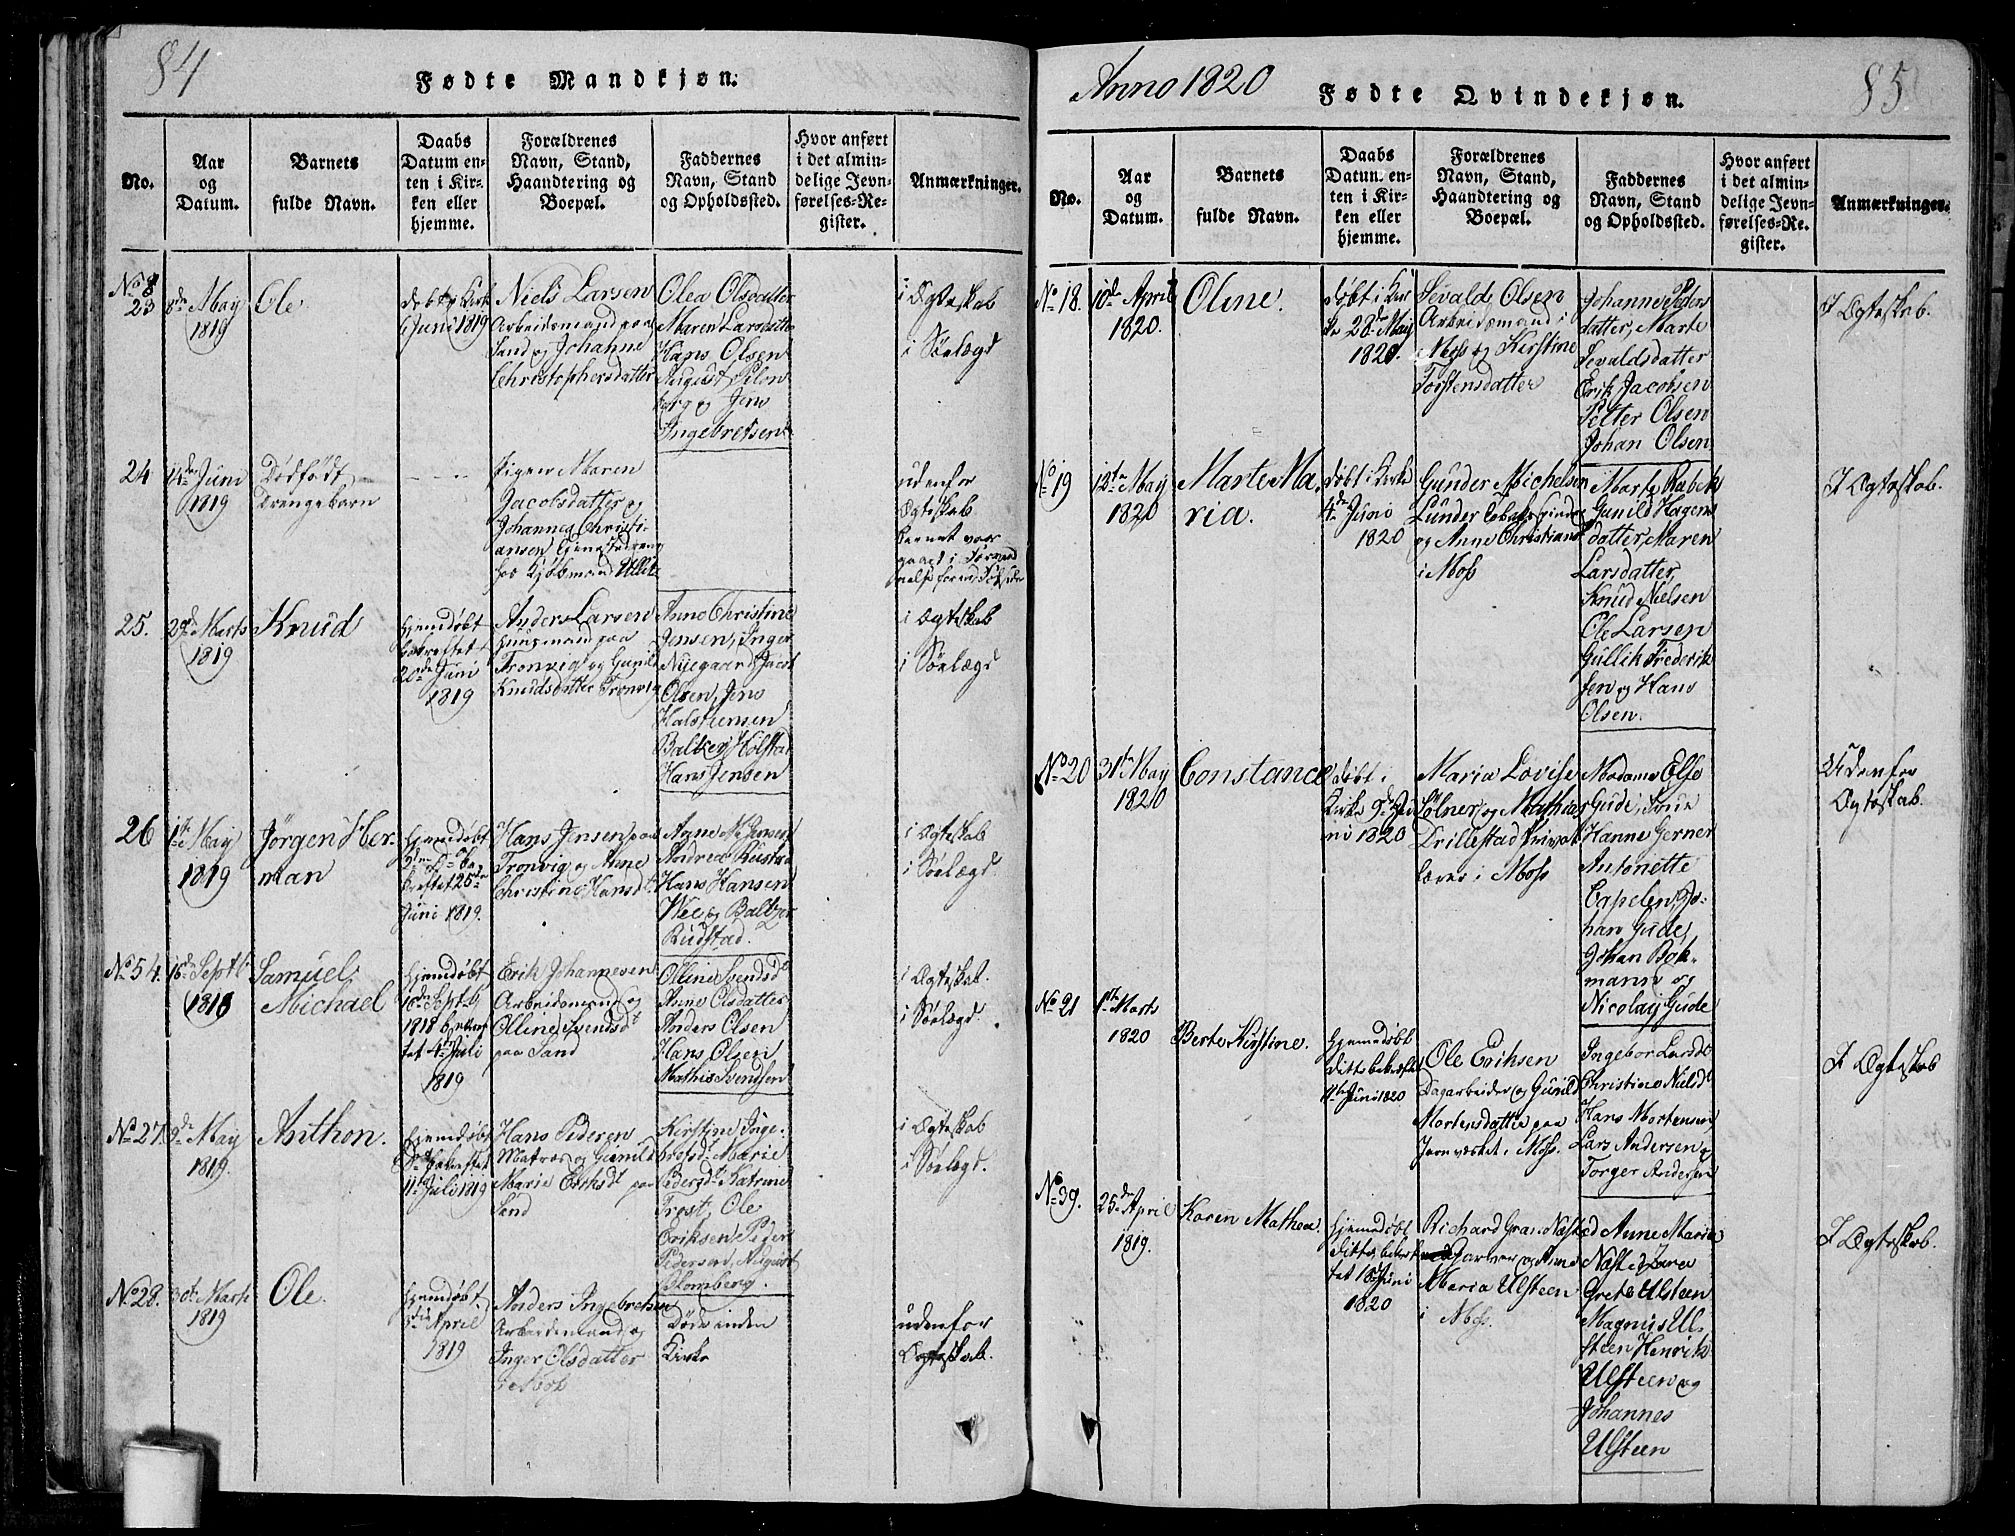 84
Fødte Mandkjøn.
No.
Aar
og
Datum.
Barnets
fulde Navn.
Daabs
Datum en-
ten i Kir-
ken eller
hjemme.
Forældrenes
Navn, Stand,
Haandtering og
Boepæl.
Faddernes
Navn, Stand
og Opholdssted.
Hvor anført
i det almin-
delige Jevn-
førelses-Re-
gister.
Anmærkninger.
23
May
1819
Ole
døbt i Kirk
6 Juni 1819
Niels Larsen
Arbeidsmand paa
Sand og Johanne
Christophersdatter
Olea Olsdatter
Maren Larsdatter
Hans Olsen
August
berg og Jens
Ingebretsen
i Ægteskab
i Sølægd
24
14de Juni
1819
Dødfødt
Drengebarn
Pigen Maren
Jacobsdatter og
Johannes Christi-
ansen
hos Kjøbmand
udenfor
Ægteskab
Barnet var
25.
29de Marts
1819
Knud
Hjemdøbt
bekræftet
20de Juni
1819
Anders Larsen
Huusmand paa
Tronvig og Gunild
Knudsdatter Tronvig
Anne Christine
Jensen, Inger
Nygaard, Jacob
Olsen, Jens
Halstensen
Balker Holstad
Hans Jensen
i Ægteskab
i Sølægd
26
1ste May
1819
Jørgen Her-
man
Hjemdøbt
Do be-
kræftet 25de
Juni 1819.
Hans Jensen paa
Tronvig og Anne
Christine Hansdt
Anne M. Jensen
Andrea Rustad
Hans Hansen
Wee og Baltzer
Rudstad.
i Ægteskab
i Sølægd.
No 54.
16de Septb.
1818
Samuel
Michael
Hjemdøbt
18de Septb
1818 bekræf
tet 4de Juli
1819
Erik Johannesen
Arbeidsmand og
Olline Svendsdt
paa Sand
Olline Svendsdt
Anne Olsdatter
Anders Olsen
Hans Olsen
Mathis Svendsen
i Ægteskab.
i Sølægd.
No 27.
9de May
1819.
Anthon.
Hjemdøbt
Do bekræftet
11te Juli 1819
Hans Pedersen
Matros og Gunild
Marie Eriksdt paa
Sand
Kirstine Inge-
bretsd. Marie
Pedersdt Katrine
Trost, Ole
Eriksen Peder
Pedersen, August
Blomberg.
i Ægteskab
i Sølægd.
No 28.
30te Marts
1819
Ole
Hjemdøbt
April
1819
Anders Ingebretsen
Arbeidsmand og
Inger Olsdatter
i Moss
Døde inden
Kirke
udenfor
Ægteskab.
Anno 1820
Fødte Qvindekjøn.
85
No.
Aar
og
Datum.
Barnets
fulde Navn.
Daabs
Datum en-
ten i Kir-
ken eller
hjemme.
Forældrenes
Navn, Stand,
Haandtering og
Boepæl.
Faddernes
Navn, Stand
og Opholdssted.
Hvor anført
i det almin-
delige Jevn-
førelses-Re-
gister.
Anmærkninger.
No 18.
10de April
1820.
Oline.
døbt i Kir
ke 28de May
1820.
Sevald Olsen
Arbeidsmand i
Moss og Kirstine
Torstensdatter
Johanne Peders
datter, Marte
Sevaldsdatter
Erik Jacobsen
Petter Olsen
Johan Olsen
I Ægteskab.
No 19
12te May
1820
Marte Ma-
ria.
døbt i Kirke
4de Juni
1820
Gunder Michelsen
Lunder Tobaksspinder
og Anne Christians
i Moss
Marte Rabek
Gunild Hagens
datter, Maren
Larsdatter,
Knud Nielsen
Ole Larsen
Gullik Frederik
sen og Hans
Olsen.
I Ægteskab.
No 20
31te May
1820
Constance
døbt i
Kirke 9de Ju
ni 1820
Maria Lovise
Sølner, og Mathias
Drillestad Privat
lærer i Moss
Madame Else
Gude, Frue
Hanne Gerner
Antonette
Capelen, Jo-
han Gude,
Johan Bok-
mann og
Nicolay Gude
Udenfor
Ægteskab.
No 21
1ste Marts
1820
Berte Kirstine.
Hjemmedøbt
ditto bekræftet
11te Juni 1820
Ole Eriksen
Dagarbeider og Gunild
Mortensdatter paa
Jernværket i Moss.
Ingebor Larsdt
Christine Nielsdt
Hans Mortensen
Lars Andersen og
Torger Andersen
I Ægteskab
No 39.
25de April
1819.
Karen Mathea.
Hjemmedøbt
ditto bekræf
tet 18de Juni
1820
Richard Gran Næsted
Garver og Anne
Maria Ulsteen
i Moss.
Anne Maria
Næsted Lara
Grete Ulsteen
Magnus Ul-
steen Henrik
Ulsteen og
Johannes
Ulsteen
I Ægteskab.